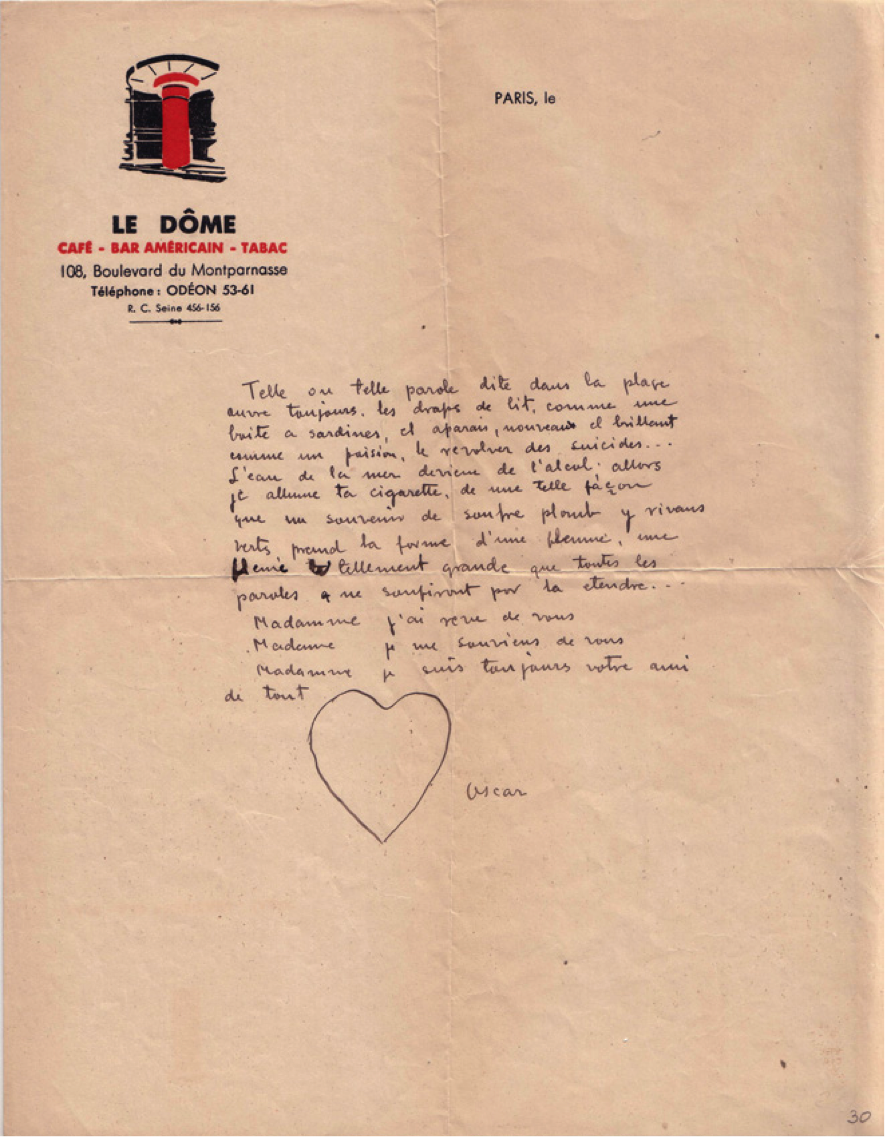 PARIS, le
LE DÔME
CAFÉ - BAR AMÉRICAIN - TABAC
108, Boulevard du Montparnasse
Téléphone : ODÉON 53-61
R. C. Seine 456-156
Telle ou telle parole dite dans la plage
ouvre toujours. les draps de lit, comme une
boite a sardines, et aparais, nouveau et brillant
comme un poision, le revolver des suicides...
L'eau de la mer deviene de l'alcol. allors
je allume ta cigarette, de une telle façon
que un souvenir de soufre plomb y
verts, prend la forme d'une flemme, une
tellement grande que toutes les
paroles ne soufiront por la etendre...
Madamme j'ai reve de vous
Madame je me souviens de vous
Madamme je suis toujours votre ami
de tout
Oscar
30